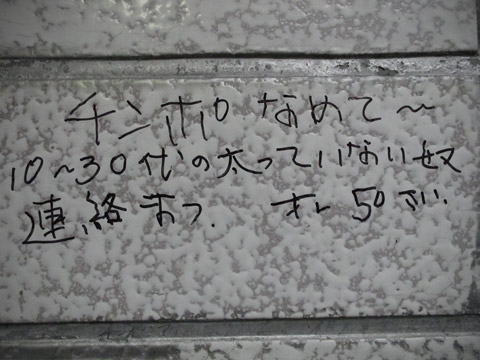 チンポなめて〜
10〜30代の太っていない奴
連絡まつ. オレ50さい.